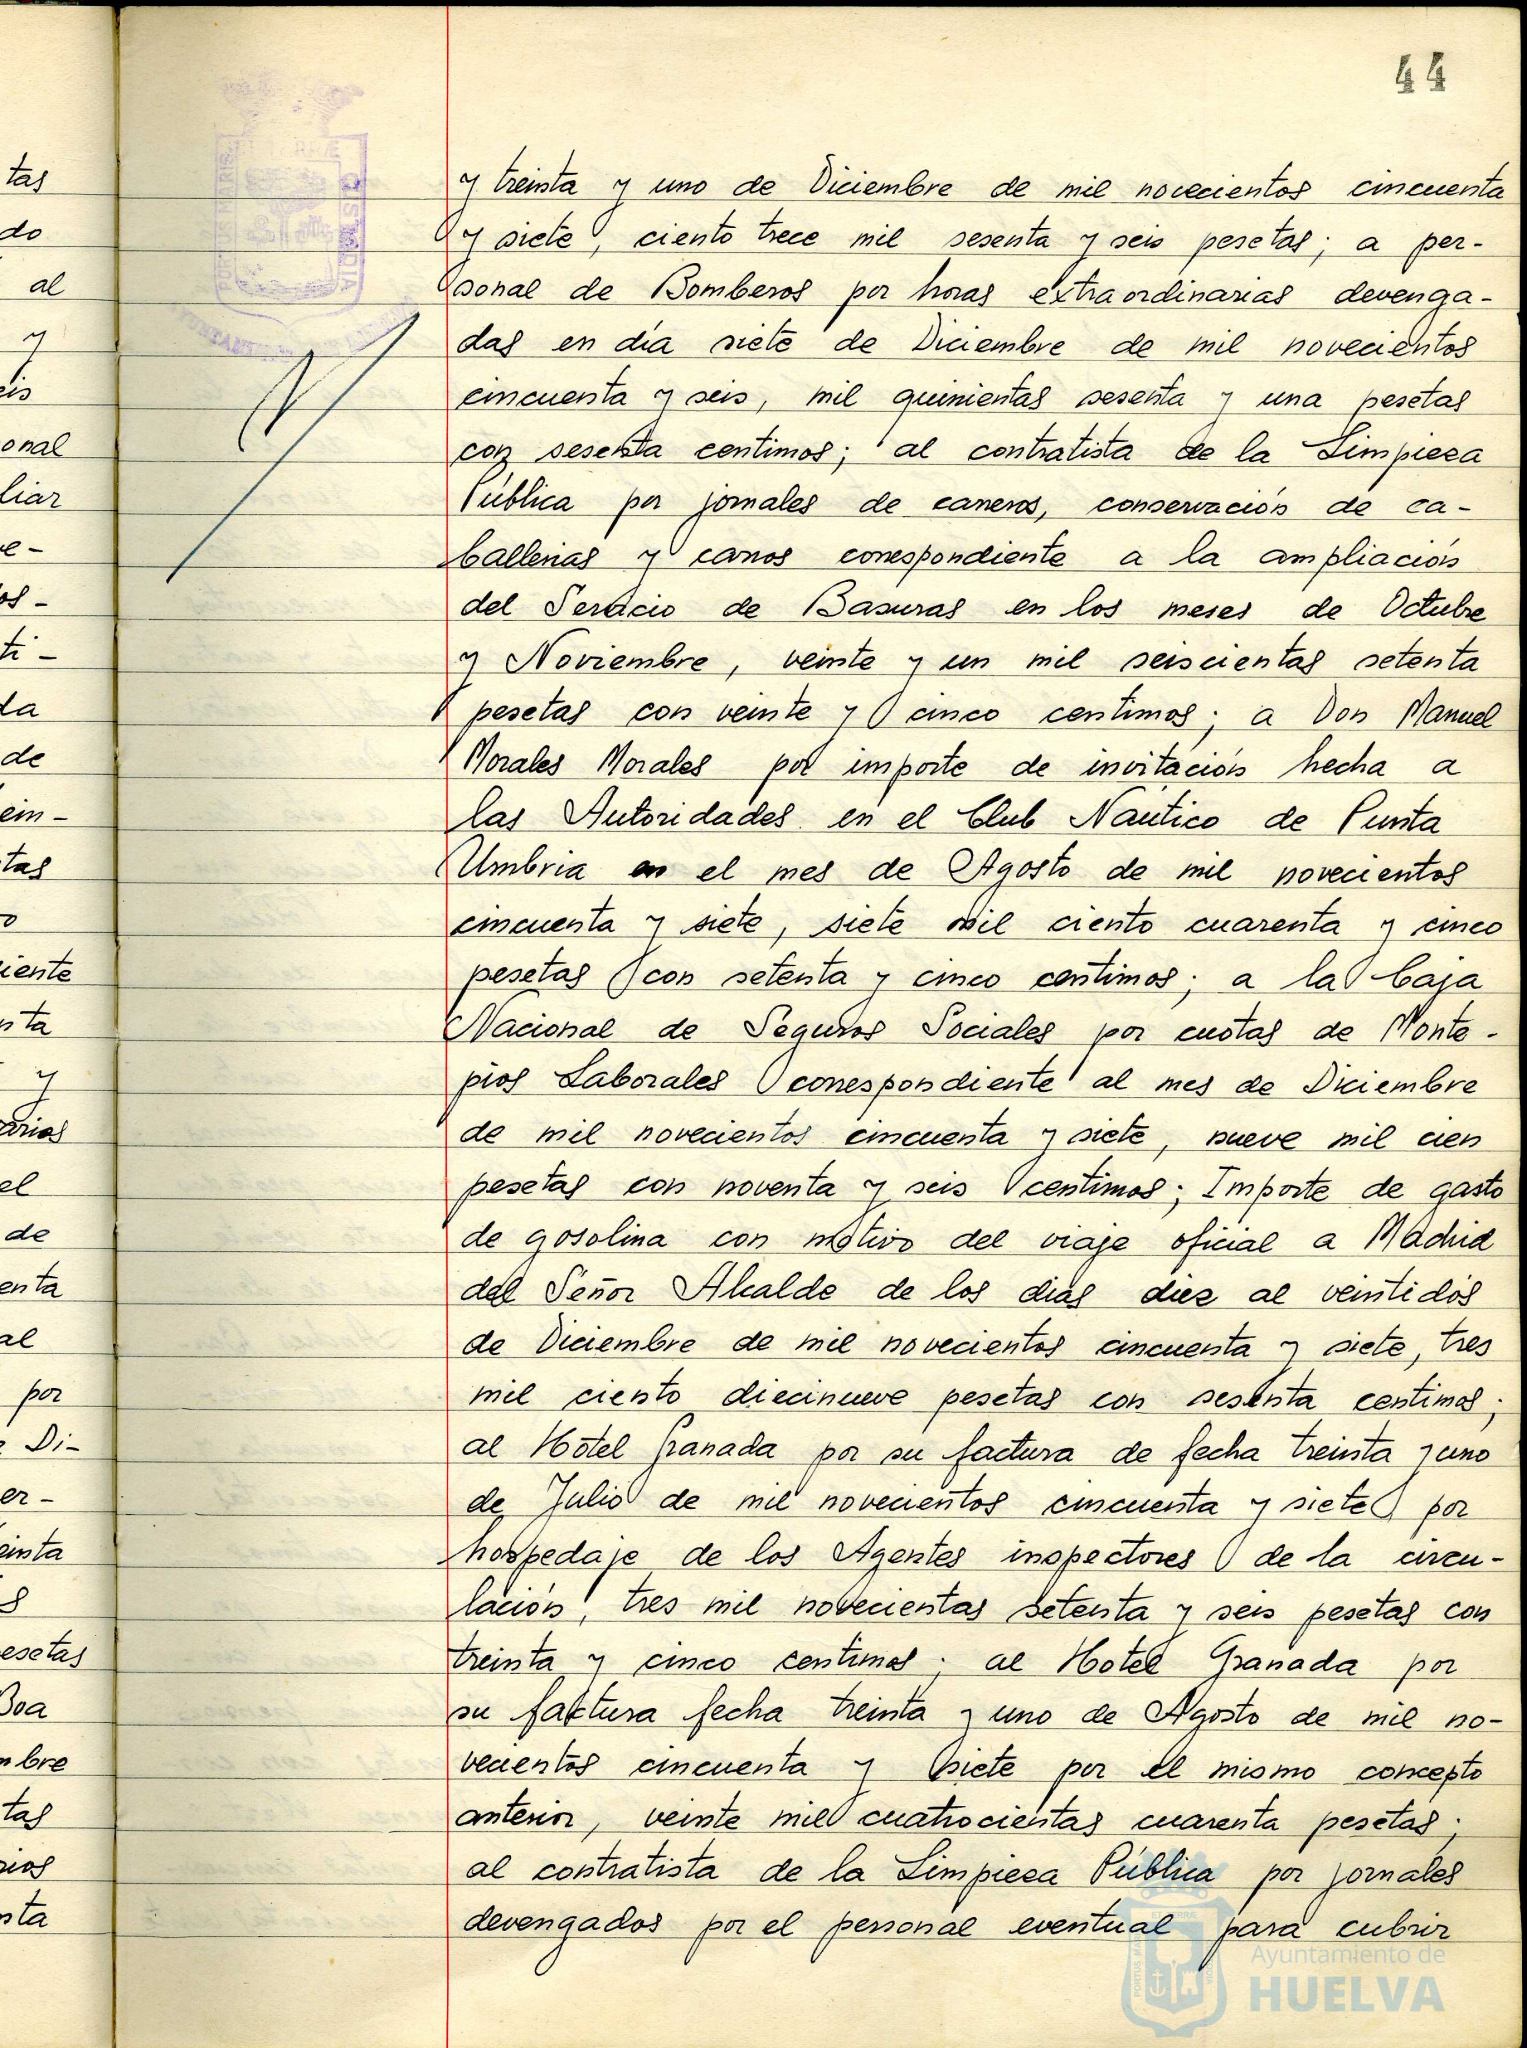 44
tas
do
al
y
eis
onal
liar
ve-
os-
ti-
da
de
ein-
tas
o
iente
nta
y
arios
el
de
enta
al
por
e Di-
er-
einta
s
esetas
Boa
mbre
tas
rios
nta
PORTUS MARIS
TERRÆ
CUSTODIA
y treinta y uno de Diciembre de mil novecientos cincuenta
y siete, ciento trece mil sesenta y seis pesetas; a per-
sonal de Bomberos por horas extraordinarias devenga-
das en día siete de Diciembre de mil novecientos
cincuenta y seis, mil quinientas sesenta y una pesetas
con sesenta centimos; al contratista de la Limpieza
Pública por jornales de carreros, conservación de ca-
ballerias y carros correspondiente a la ampliación
del Servicio de Basuras en los meses de Octubre
y Noviembre, veinte y un mil seiscientas setenta
pesetas con veinte y cinco centimos; a Don Manuel
Morales Morales por importe de invitación hecha a
las Autoridades en el Club Naútico de Punta
Umbria en el mes de Agosto de mil novecientos
cincuenta y siete, siete mil ciento cuarenta y cinco
pesetas con setenta y cinco centimos; a la Caja
Nacional de Seguros Sociales por cuotas de Monte-
pios Laborales correspondiente al mes de Diciembre
de mil novecientos cincuenta y siete, nueve mil cien
pesetas con noventa y seis centimos; Importe de gasto
de gosolina con motivo del viaje oficial a Madrid
del Señor Alcalde de los dias diez al veintidós
de Diciembre de mil novecientos cincuenta y siete, tres
mil ciento diecinueve pesetas con sesenta centimos;
al Hotel Granada por su factura de fecha treinta y uno
de Julio de mil novecientos cincuenta y siete por
hospedaje de los Agentes inspectores de la circu-
lación, tres mil novecientas setenta y seis pesetas con
treinta y cinco centimos; al Hotel Granada por
su factura fecha treinta y uno de Agosto de mil no-
vecientos cincuenta y siete por el mismo concepto
anterior, veinte mil cuatrocientas cuarenta pesetas;
al contratista de la Limpieza Pública por jornales
devengados por el personal eventual para cubrir
Ayuntamiento de
HUELVA